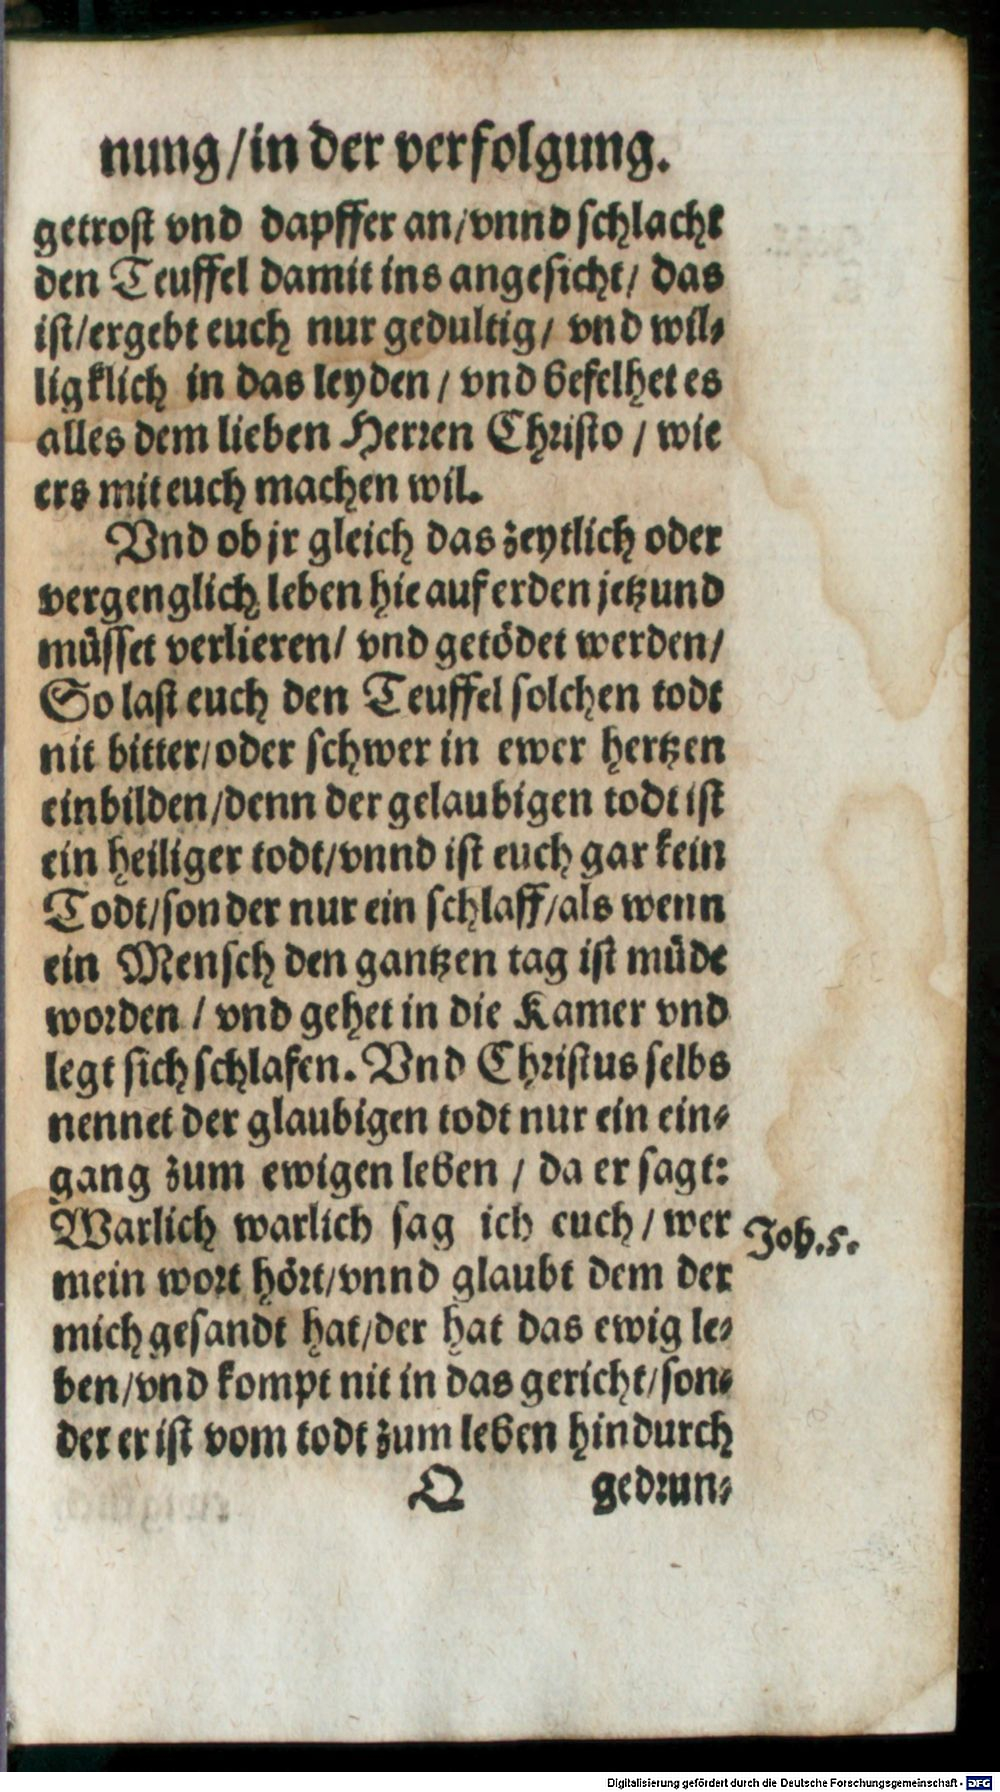 nung/in der verfolgung.
getrost vnd dapffer an/vnnd schlacht
den Teuffel damit ins angesicht/ das
ist/ergebt euch nur gedultig/ vnd wil-
ligklich in das leyden / vnd befelhet es
alles dem lieben Herren Christo / wie
ers mit euch machen wil.
Vnd ob jr gleich das zeytlich oder
vergenglich leben hie auf erden jetzund
müsset verlieren/ vnd getödet werden/
So last euch den Teuffel solchen todt
nit bitter/oder schwer in ewer hertzen
einbilden/denn der gelaubigen todt ist
ein heiliger todt/vnnd ist euch gar kein
Todt/sonder nur ein schlaff/als wenn
ein Mensch den gantzen tag ist müde
worden / vnd gehet in die Kamer vnd
legt sich schlafen. Vnd Christus selbs
nennet der glaubigen todt nur ein ein-
gang zum ewigen leben / da er sagt:
Warlich warlich sag ich euch/ wer
Joh.5.
mein wort hört/vnnd glaubt dem der
mich gesandt hat/der hat das ewig le-
ben/vnd kompt nit in das gericht/son-
der er ist vom todt zum leben hindurch
Q gedrun-
Digitalisierung gefördert durch die Deutsche Forschungsgemeinschaft - DFG